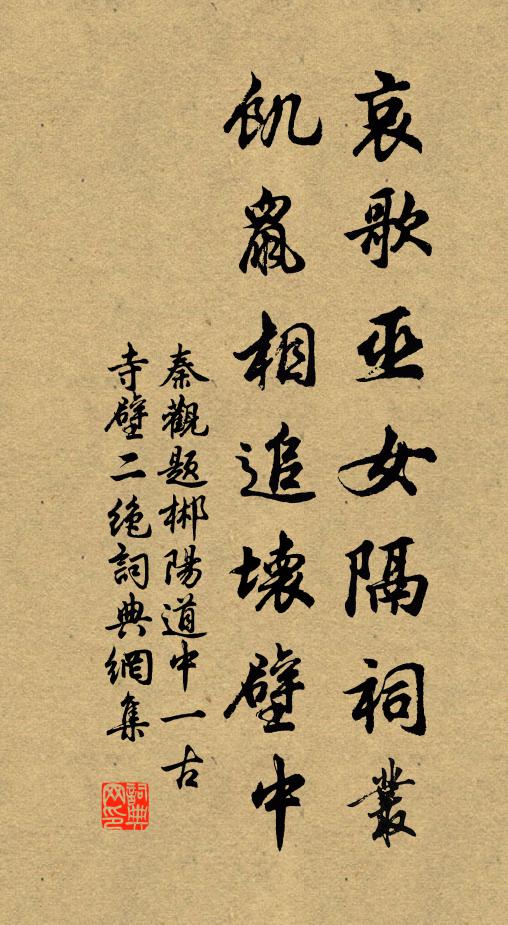 哀歌巫女隔祠叢
飢鼠相追壞壁中
秦觀題郴陽道中一古
寺壁二絶詞典網集
詞典網印